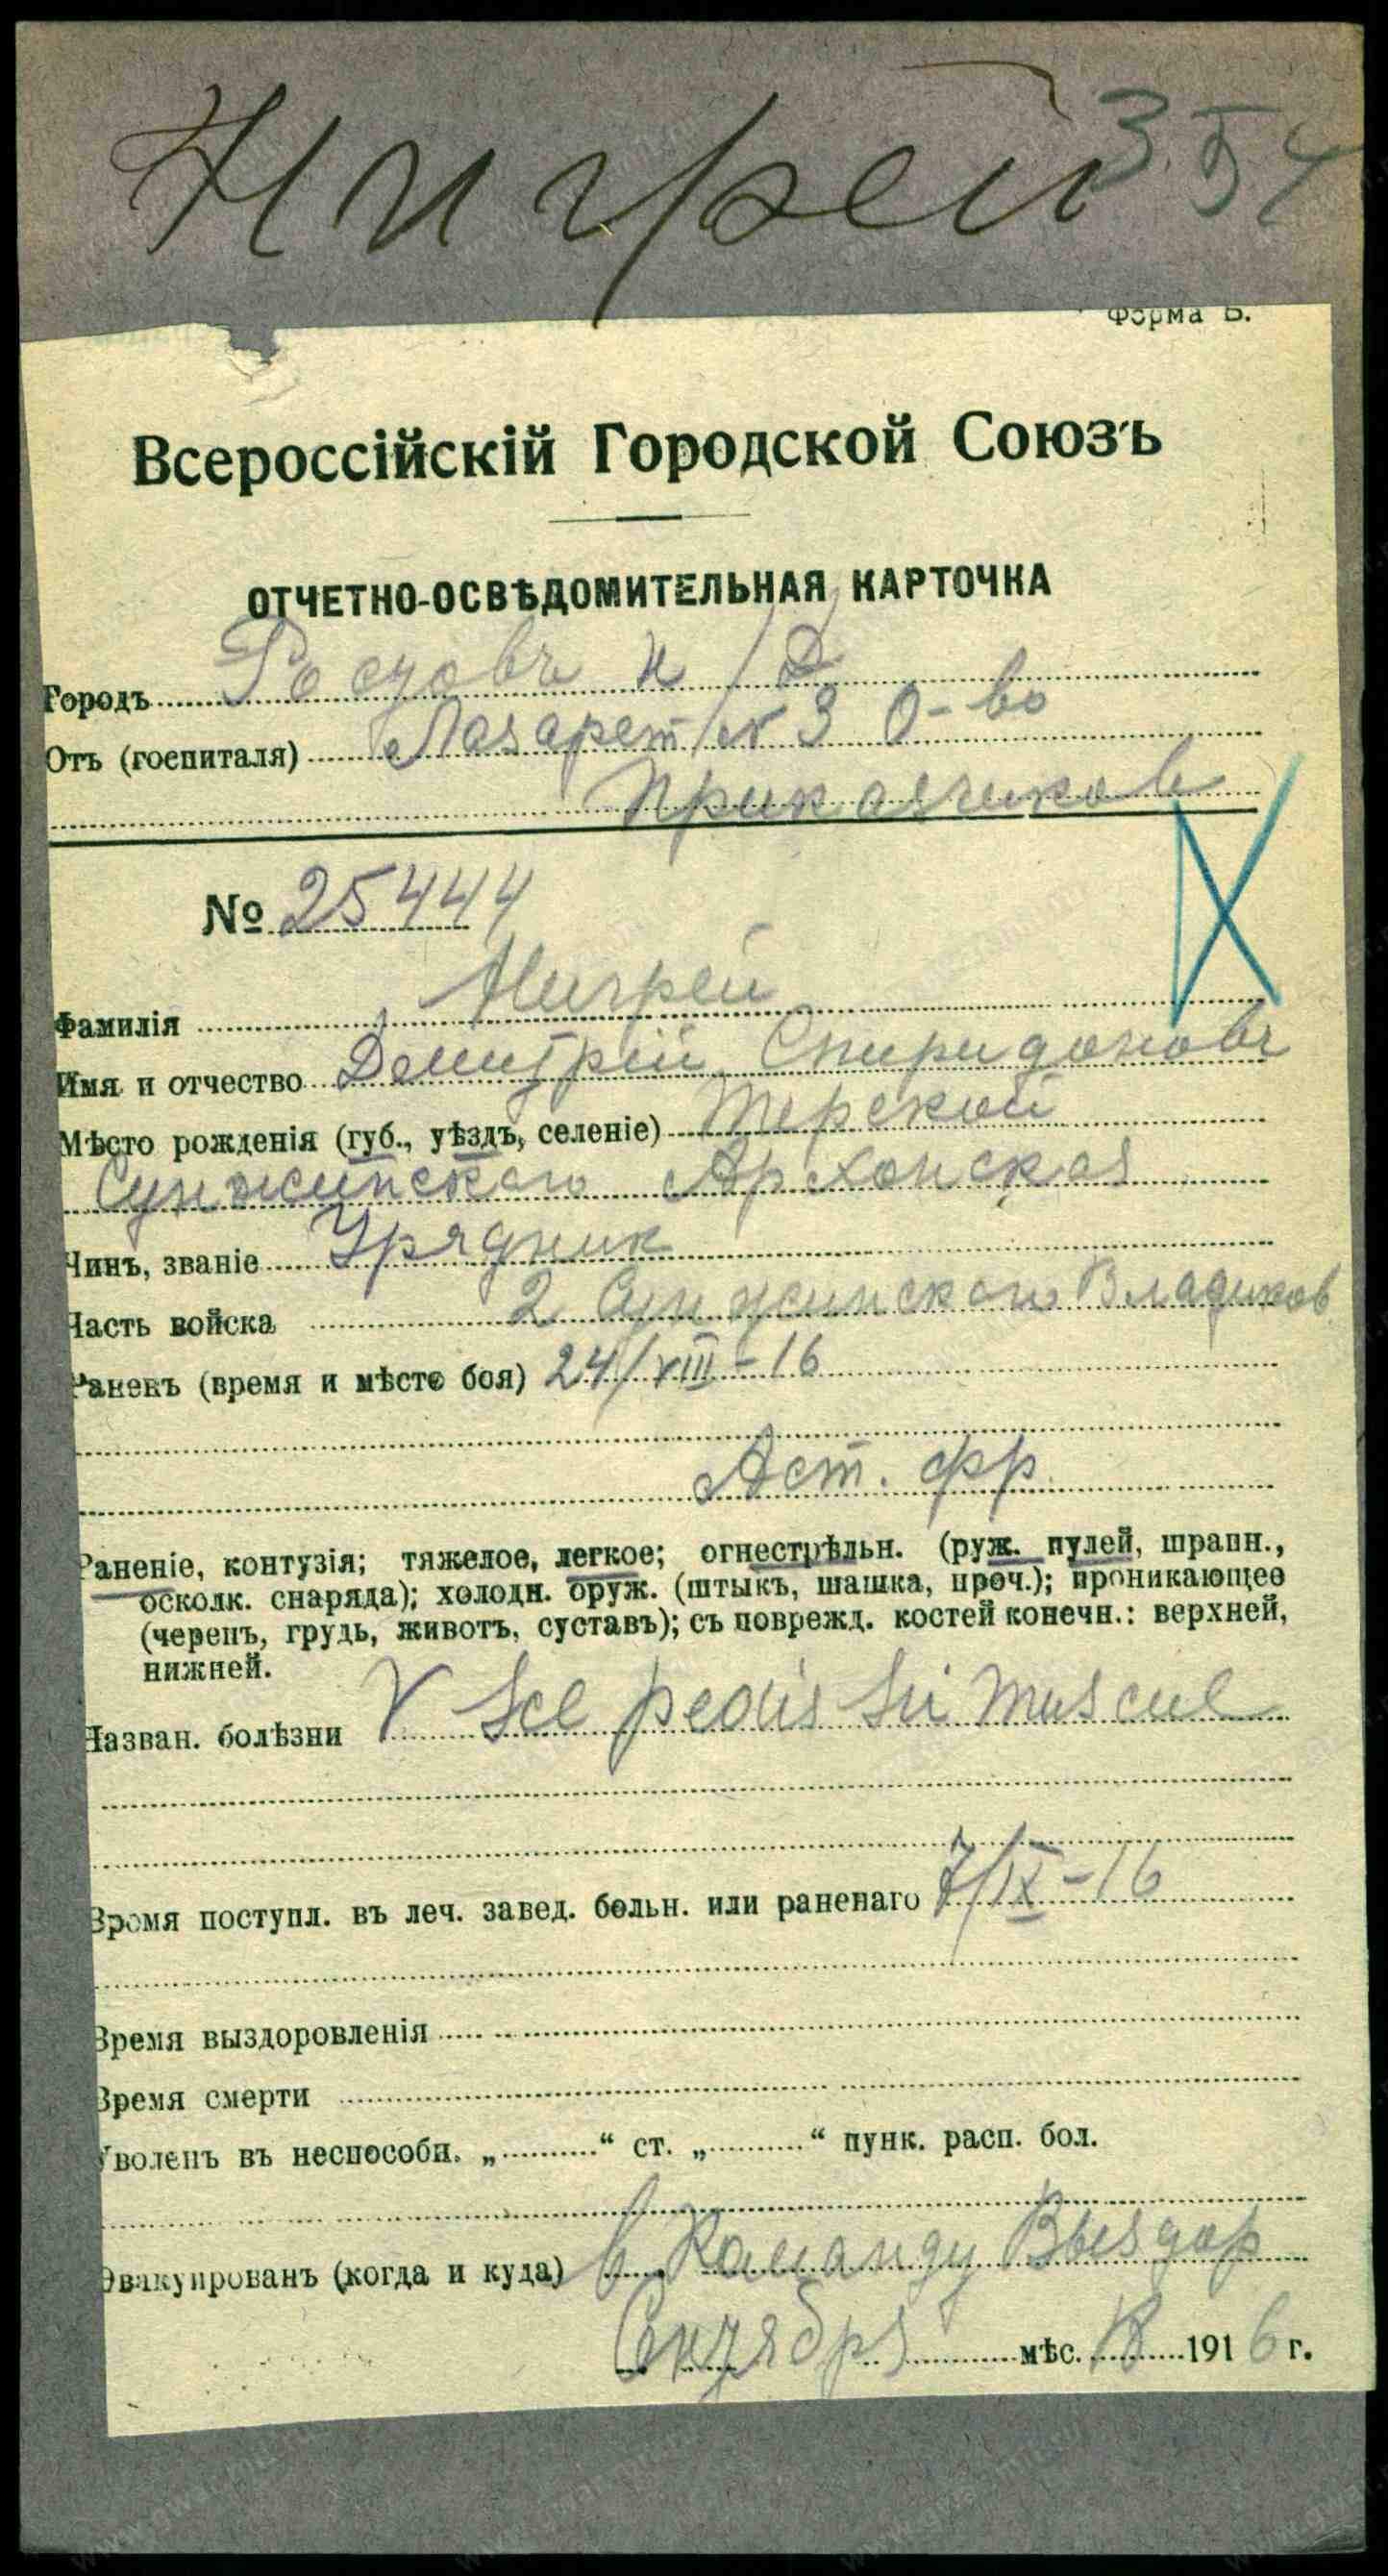 Нигрей 354
Форма Б.
Всероссійскій Городской Союзъ
ОТЧЕТНО-ОСВѢДОМИТЕЛЬНАЯ КАРТОЧКА
Городъ Ростовъ н/Д
Отъ (госпиталя) Лазарет № 3 О-во
Приказчиков
№ 25444
Фамилія Нигрей
Имя и отчество Дмитрій Спиридоновъ
Мѣсто рожденія (губ., уѣздъ, селеніе) Терской
Сунженскаго Архонская
Чинъ, званіе Урядник
Часть войска 2 Сунженскаго Владиков
Раненъ (время и мѣсто боя) 24/VIII-16
Аст. фр
Раненіе, контузія; тяжелое, легкое; огнестрѣльн. (руж. пулей, шрапн.,
осколк. снаряда); холодн. оруж. (штыкъ, шашка, проч.); проникающее
(черепъ, грудь, животъ, суставъ); съ поврежд. костей конечн.: верхней,
нижней.
Назван. болѣзни V. Scl pedis sin muscul
Время поступл. въ леч. завед. больн. или раненаго 7/IX-16
Время выздоровленія
Время смерти
Уволенъ въ неспособн. „ “ ст. „ “ пунк. расп. бол.
Эвакуированъ (когда и куда) в Команду Выздор
Октября мѣс. 18 1916 г.